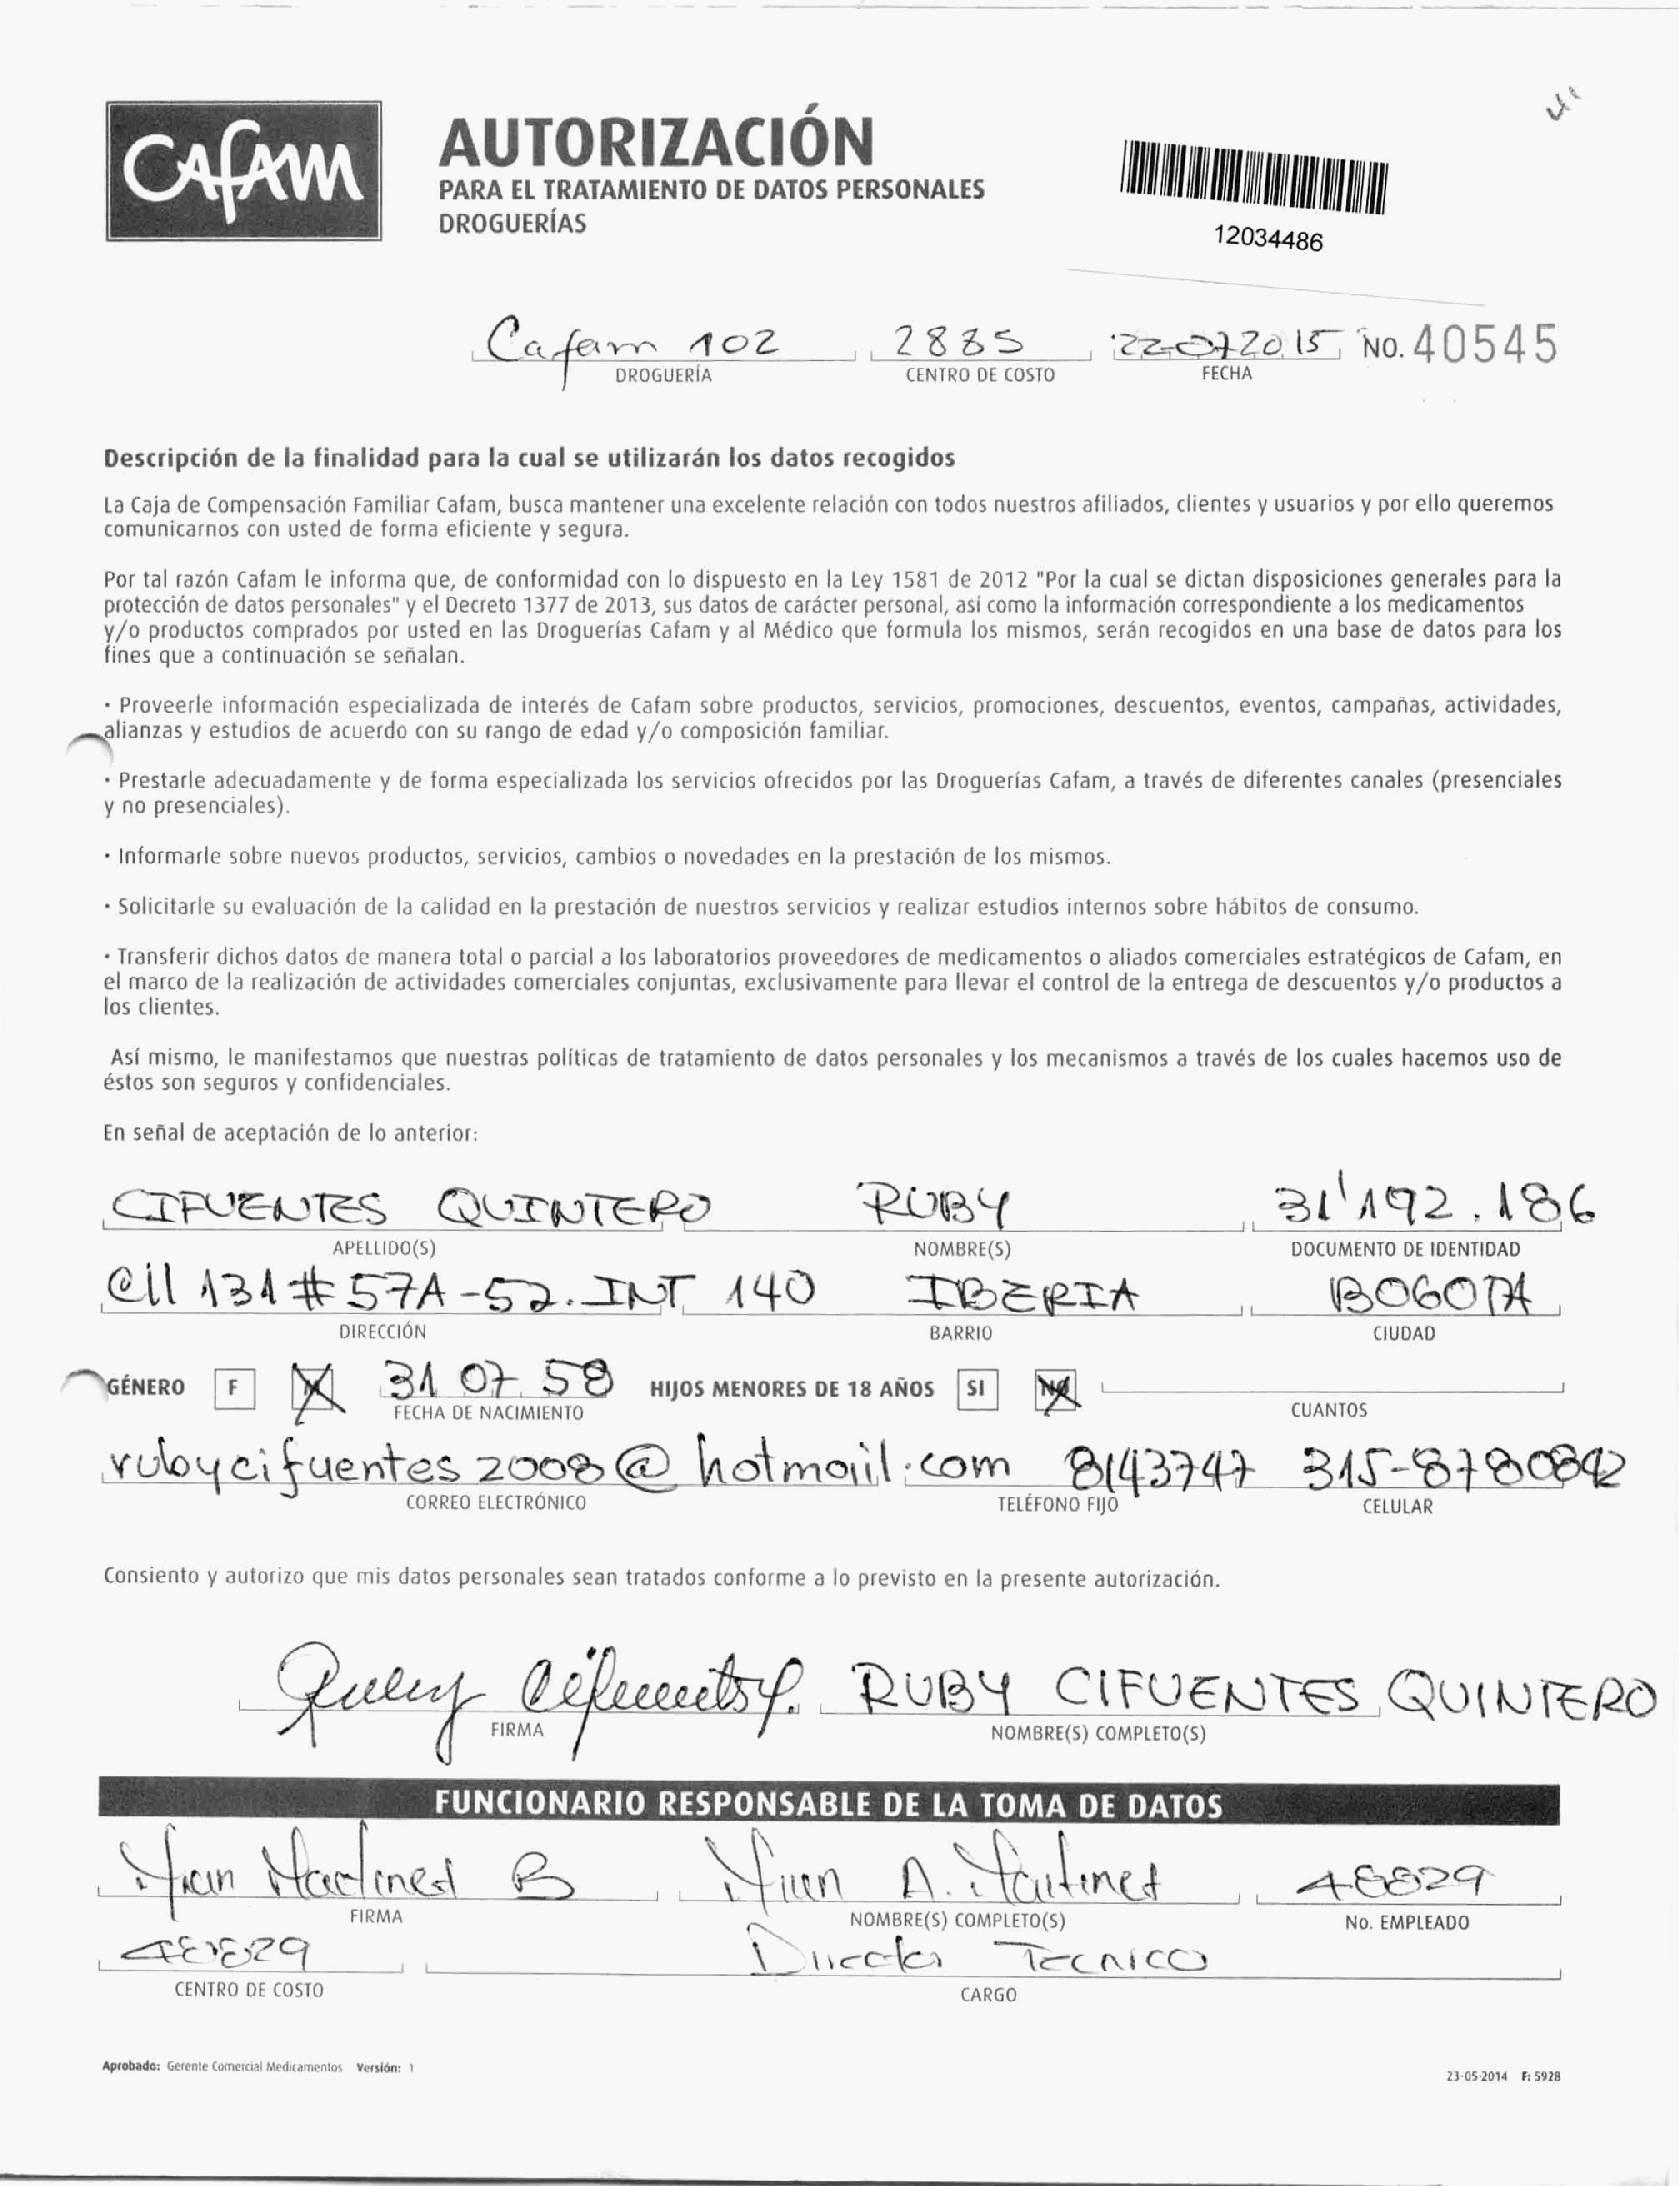 CAFAM
AUTORIZACIÓN
PARA EL TRATAMIENTO DE DATOS PERSONALES
DROGUERÍAS
12034486
Cafam 102 2885 22-07 2015 No. 40545
DROGUERÍA CENTRO DE COSTO FECHA
Descripción de la finalidad para la cual se utilizarán los datos recogidos
La Caja de Compensación Familiar Cafam, busca mantener una excelente relación con todos nuestros afiliados, clientes y usuarios y por ello queremos
comunicarnos con usted de forma eficiente y segura.
Por tal razón Cafam le informa que, de conformidad con lo dispuesto en la Ley 1581 de 2012 "Por la cual se dictan disposiciones generales para la
protección de datos personales" y el Decreto 1377 de 2013, sus datos de carácter personal, así como la información correspondiente a los medicamentos
y/o productos comprados por usted en las Droguerías Cafam y al Médico que formula los mismos, serán recogidos en una base de datos para los
fines que a continuación se señalan.
· Proveerle información especializada de interés de Cafam sobre productos, servicios, promociones, descuentos, eventos, campañas, actividades,
alianzas y estudios de acuerdo con su rango de edad y/o composición familiar.
· Prestarle adecuadamente y de forma especializada los servicios ofrecidos por las Droguerías Cafam, a través de diferentes canales (presenciales
y no presenciales).
· Informarle sobre nuevos productos, servicios, cambios o novedades en la prestación de los mismos.
· Solicitarle su evaluación de la calidad en la prestación de nuestros servicios y realizar estudios internos sobre hábitos de consumo.
· Transferir dichos datos de manera total o parcial a los laboratorios proveedores de medicamentos o aliados comerciales estratégicos de Cafam, en
el marco de la realización de actividades comerciales conjuntas, exclusivamente para llevar el control de la entrega de descuentos y/o productos a
los clientes.
Así mismo, le manifestamos que nuestras políticas de tratamiento de datos personales y los mecanismos a través de los cuales hacemos uso de
éstos son seguros y confidenciales.
En señal de aceptación de lo anterior:
CIFUENTES QUINTERO RUBY 31'192.186
APELLIDO(S) NOMBRE(S) DOCUMENTO DE IDENTIDAD
Cll 131 # 57A-52. INT 140 IBERIA BOGOTA
DIRECCIÓN BARRIO CIUDAD
GÉNERO F 31 07 58 HIJOS MENORES DE 18 AÑOS SI NO
FECHA DE NACIMIENTO CUANTOS
rubycifuentes2008@hotmail.com 8143747 315-8780842
CORREO ELECTRÓNICO TELÉFONO FIJO CELULAR
Consiento y autorizo que mis datos personales sean tratados conforme a lo previsto en la presente autorización.
RUBY CIFUENTES QUINTERO
FIRMA NOMBRE(S) COMPLETO(S)
FUNCIONARIO RESPONSABLE DE LA TOMA DE DATOS
Martinez B A. Martinez 48829
FIRMA NOMBRE(S) COMPLETO(S) No. EMPLEADO
48829 Director Tecnico
CENTRO DE COSTO CARGO
Aprobado: Gerente Comercial Medicamentos Versión: 1
23-05-2014 F: 5928